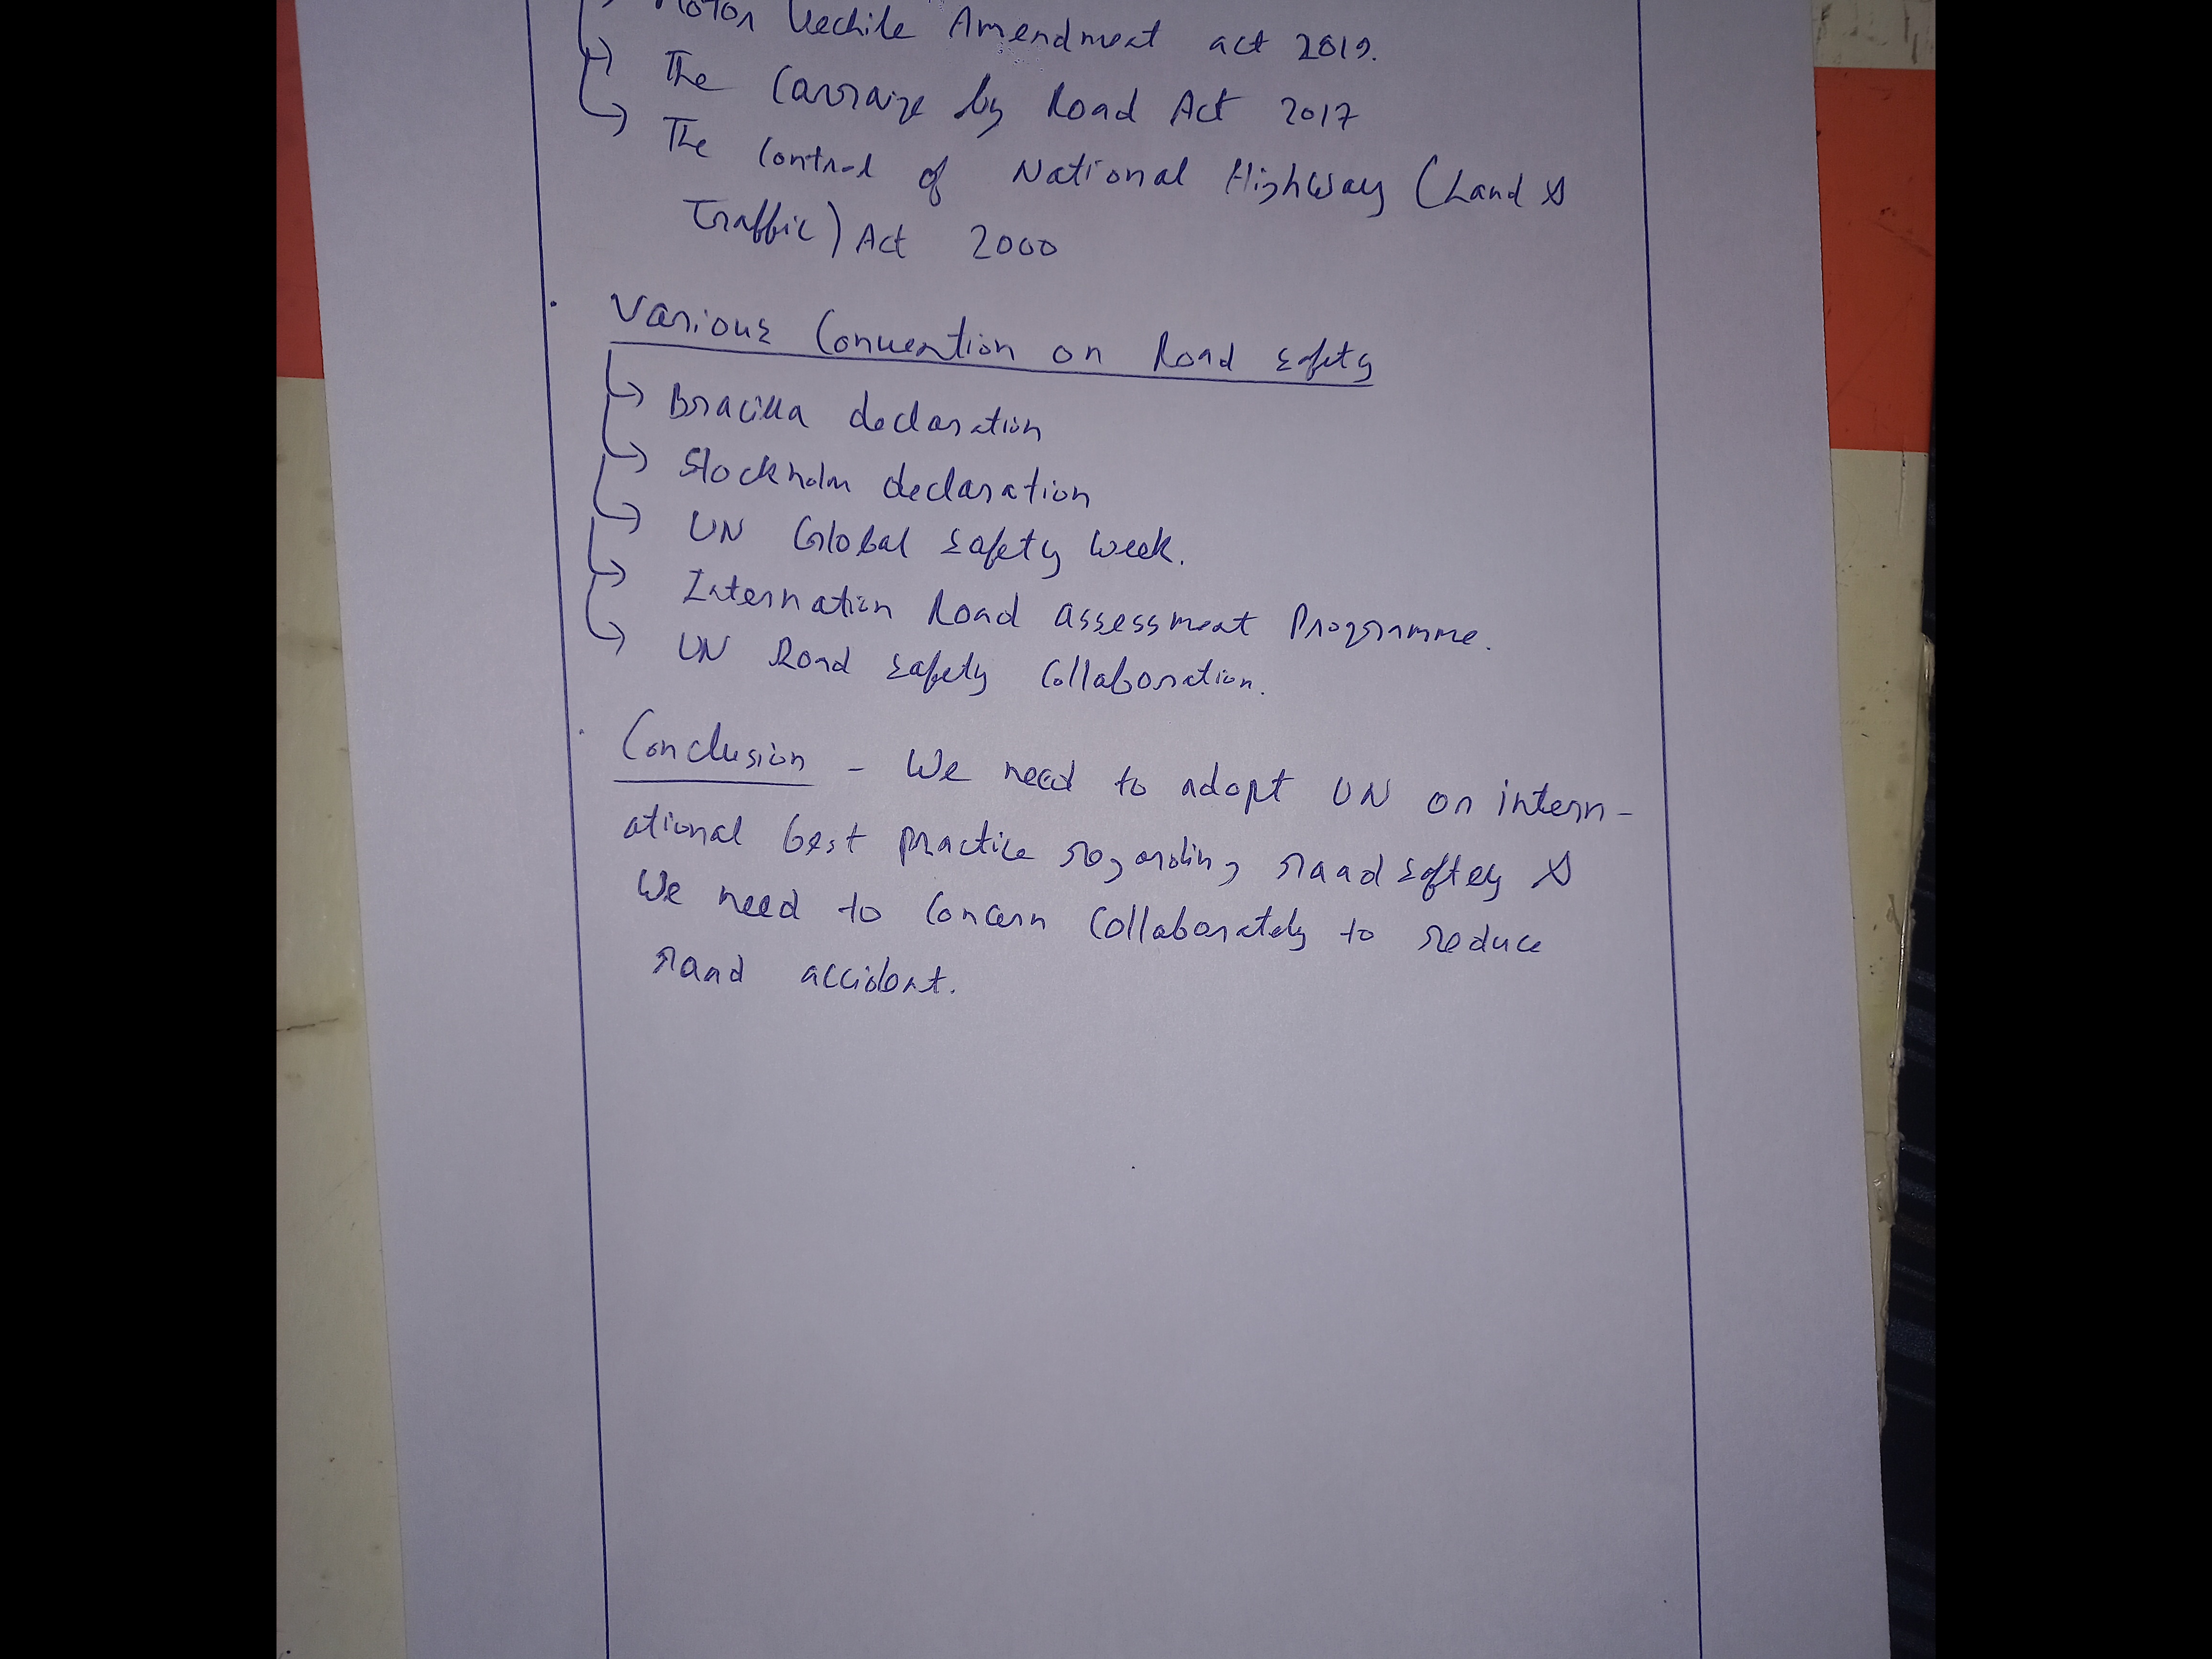 Motor Vechile Amendment act 2019.
The Carraige by Road Act 2017
The Control of National Highway (Land &
Traffic) Act 2000
Various Convention on Road Safety
Bracilla declaration
Stockholm declaration
UN Global Safety Week.
Internation Road assessment Programme.
UN Road Safety Collaboration.
Conclusion - We need to adopt UN or intern-
ational best practice regarding raad saftey &
We need to Concern Collaborately to reduce
raad accident.